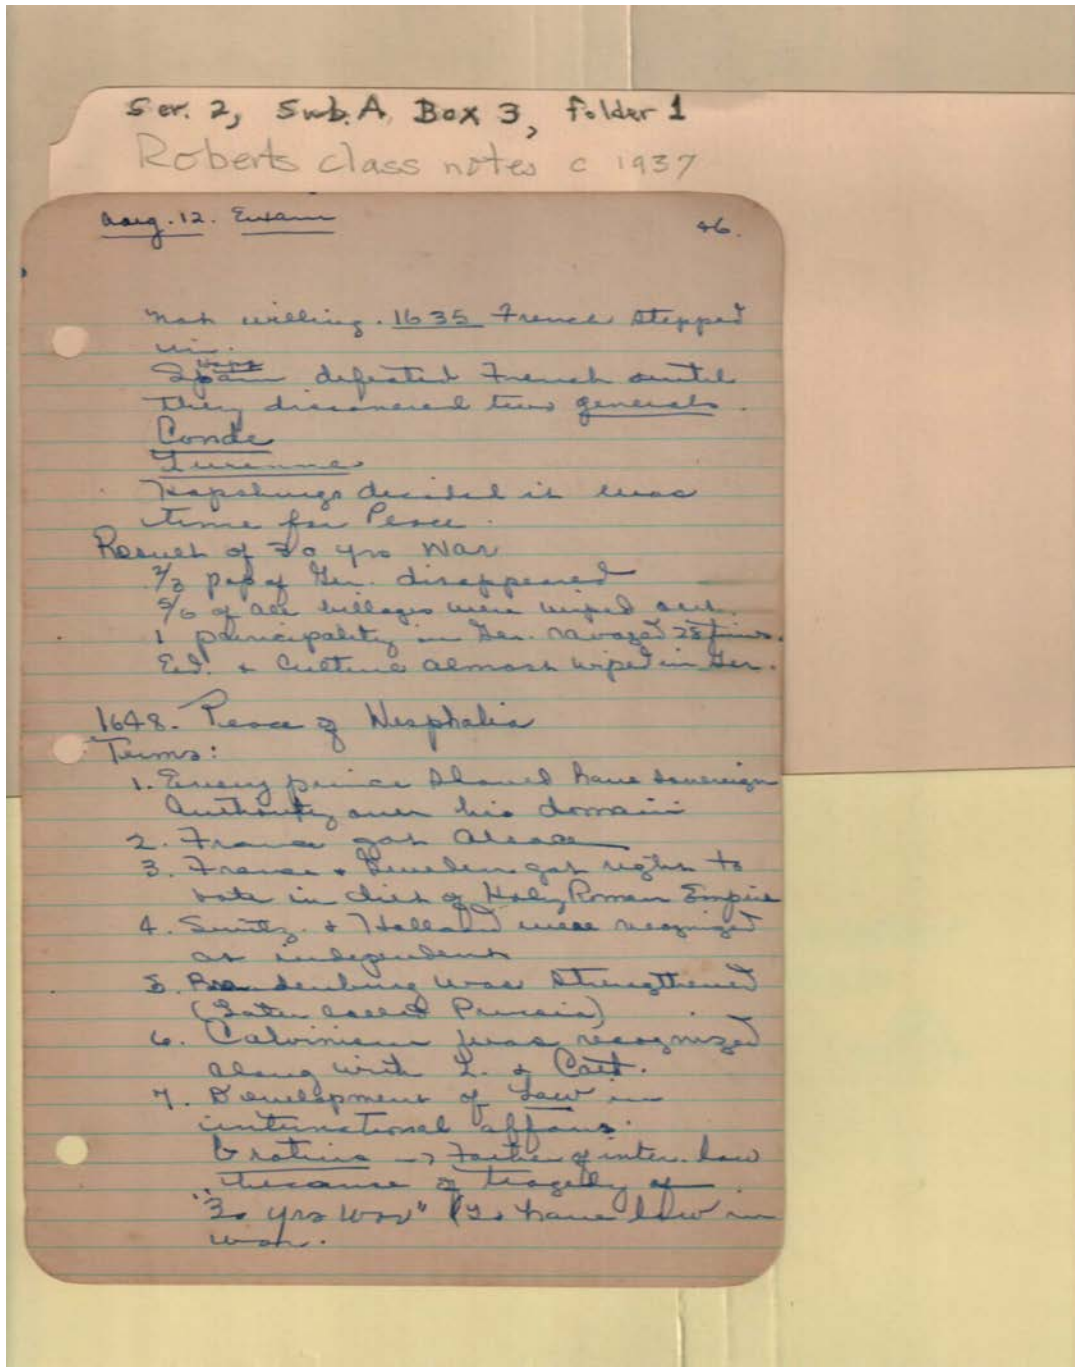 Ser. 2, Sub. A, Box 3, folder 1
Roberts class notes c 1937
Aug. 12. Exam
46.
not willing. 1635 French stepped
in.
Haps
Spain defeated French until
they discovered two generals.
Conde
Turenne
Hapsburgs decided it was
time for Peace.
Result of 30 yrs War
2/3 pop of Ger. disappeared
5/6 of all villages were wiped out.
1 principality in Ger. ravaged 28 times.
Ed. & Culture almost wiped in Ger.
1648. Peace of Wesphalia
Terms:
1. Every prince should have sovereign
Authority over his domain
2. France got Alsace
3. France & Sweden got right to
vote in diet of Holy Roman Empire
4. Switz. & Holland were recognized
as independent
5. Brandenburg was strengthened
(Later called Prussia)
6. Calvinism was recognized
along with L. & Cath.
7. Development of Law in
international affairs.
Grotius → Father of inter. law
because of tragedy of
"30 yrs War" (To have law in
war.